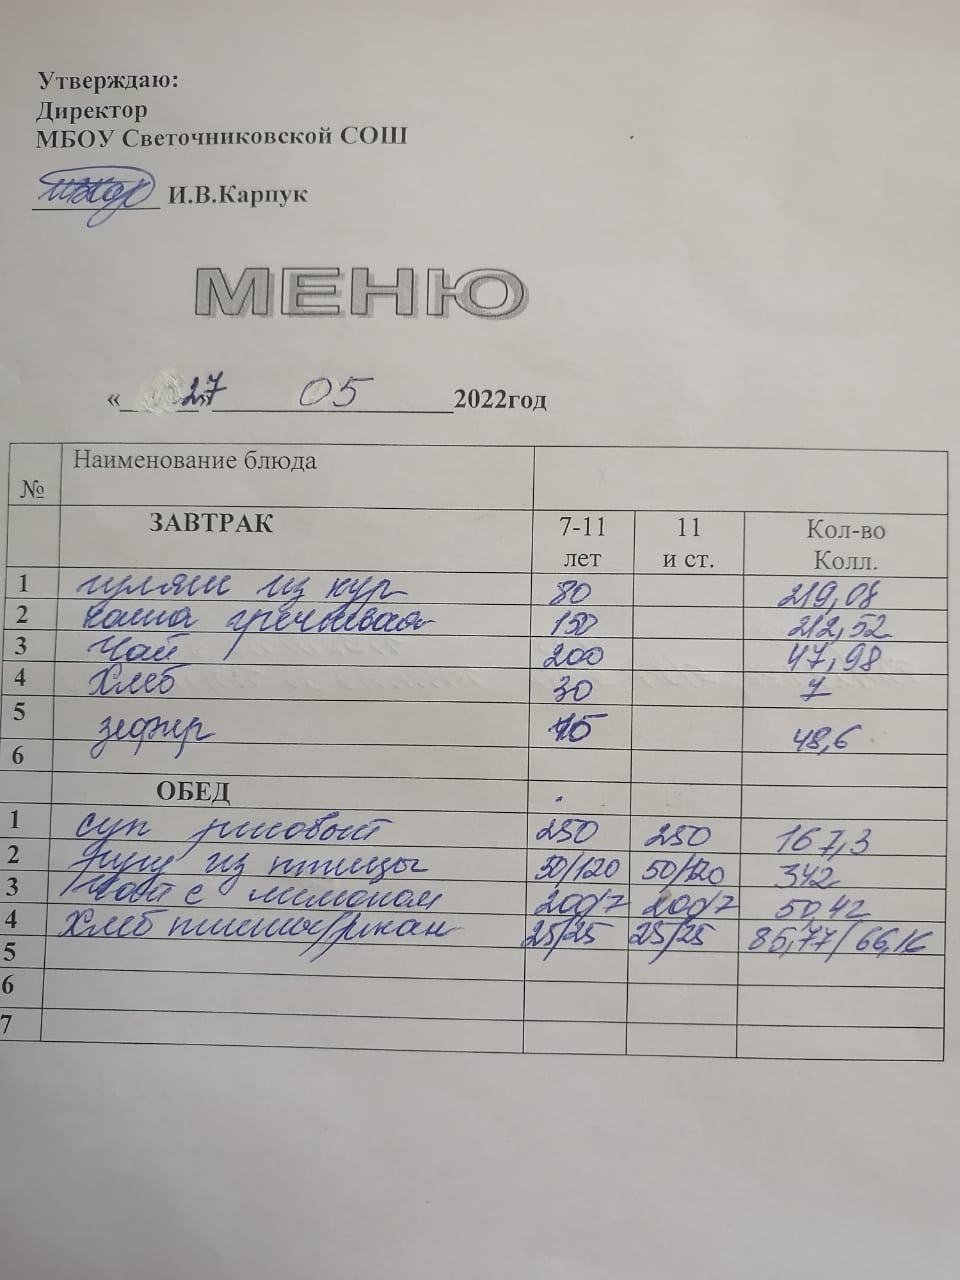 Утверждаю:
Директор
МБОУ Светочниковской СОШ
И.В.Карпук
МЕНЮ
« 27 05 2022год
№ Наименование блюда
ЗАВТРАК 7-11 лет 11 и ст. Кол-во Колл.
1 гуляш из кур 80 219,08
2 каша гречневая 150 212,52
3 Чай 200 47,98
4 Хлеб 30 7
5 зефир 15 48,6
6
ОБЕД
1 суп рисовый 250 250 167,3
2 рагу из птицы 50/120 50/120 342
3 Чай с лимоном 200/7 200/7 50,42
4 Хлеб пшенич/ржан 25/25 25/25 85,77/66,16
5
6
7